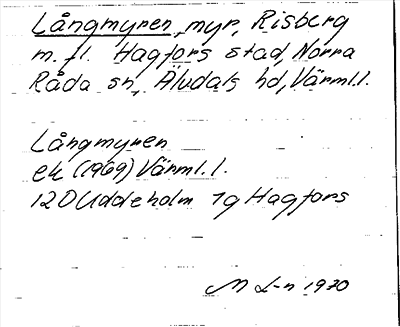 Långmyren, myr, Risberg
m. fl. Hagfors stad, Norra
Råda sn, Älvdals hd, Värml. l.
Långmyren
ek (1969) Värml. l.
12D Uddeholm 1g Hagfors
M L-n 1970